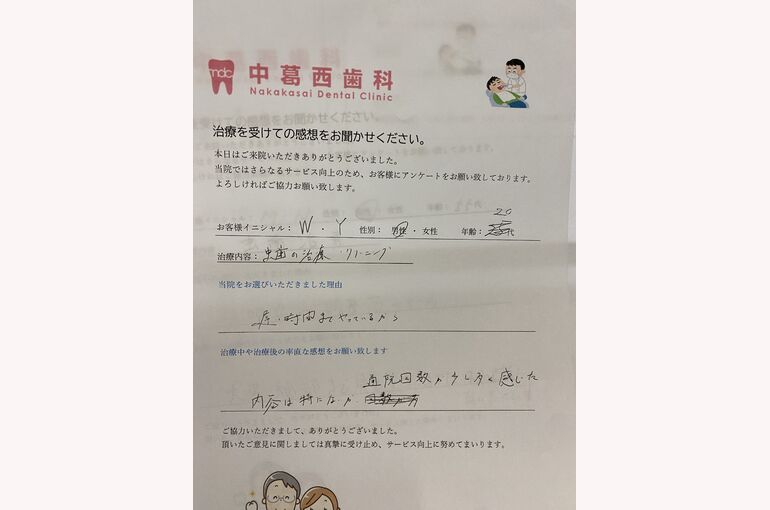 ndc 中葛西歯科
Nakakasai Dental Clinic
治療を受けての感想をお聞かせください。
本日はご来院いただきありがとうございました。
当院ではさらなるサービス向上のため、お客様にアンケートをお願い致しております。
よろしければご協力お願い致します。
20
お客様イニシャル： W ・ Y 性別： 男性 ・ 女性 年齢： 代
治療内容： 虫歯の治療・クリーニング
当院をお選びいただきました理由
遅い時間までやっているから
治療中や治療後の率直な感想をお願い致します
通院回数が少し多く感じた
内容は特にないが
ご協力いただきまして、ありがとうございました。
頂いたご意見に関しましては真摯に受け止め、サービス向上に努めてまいります。